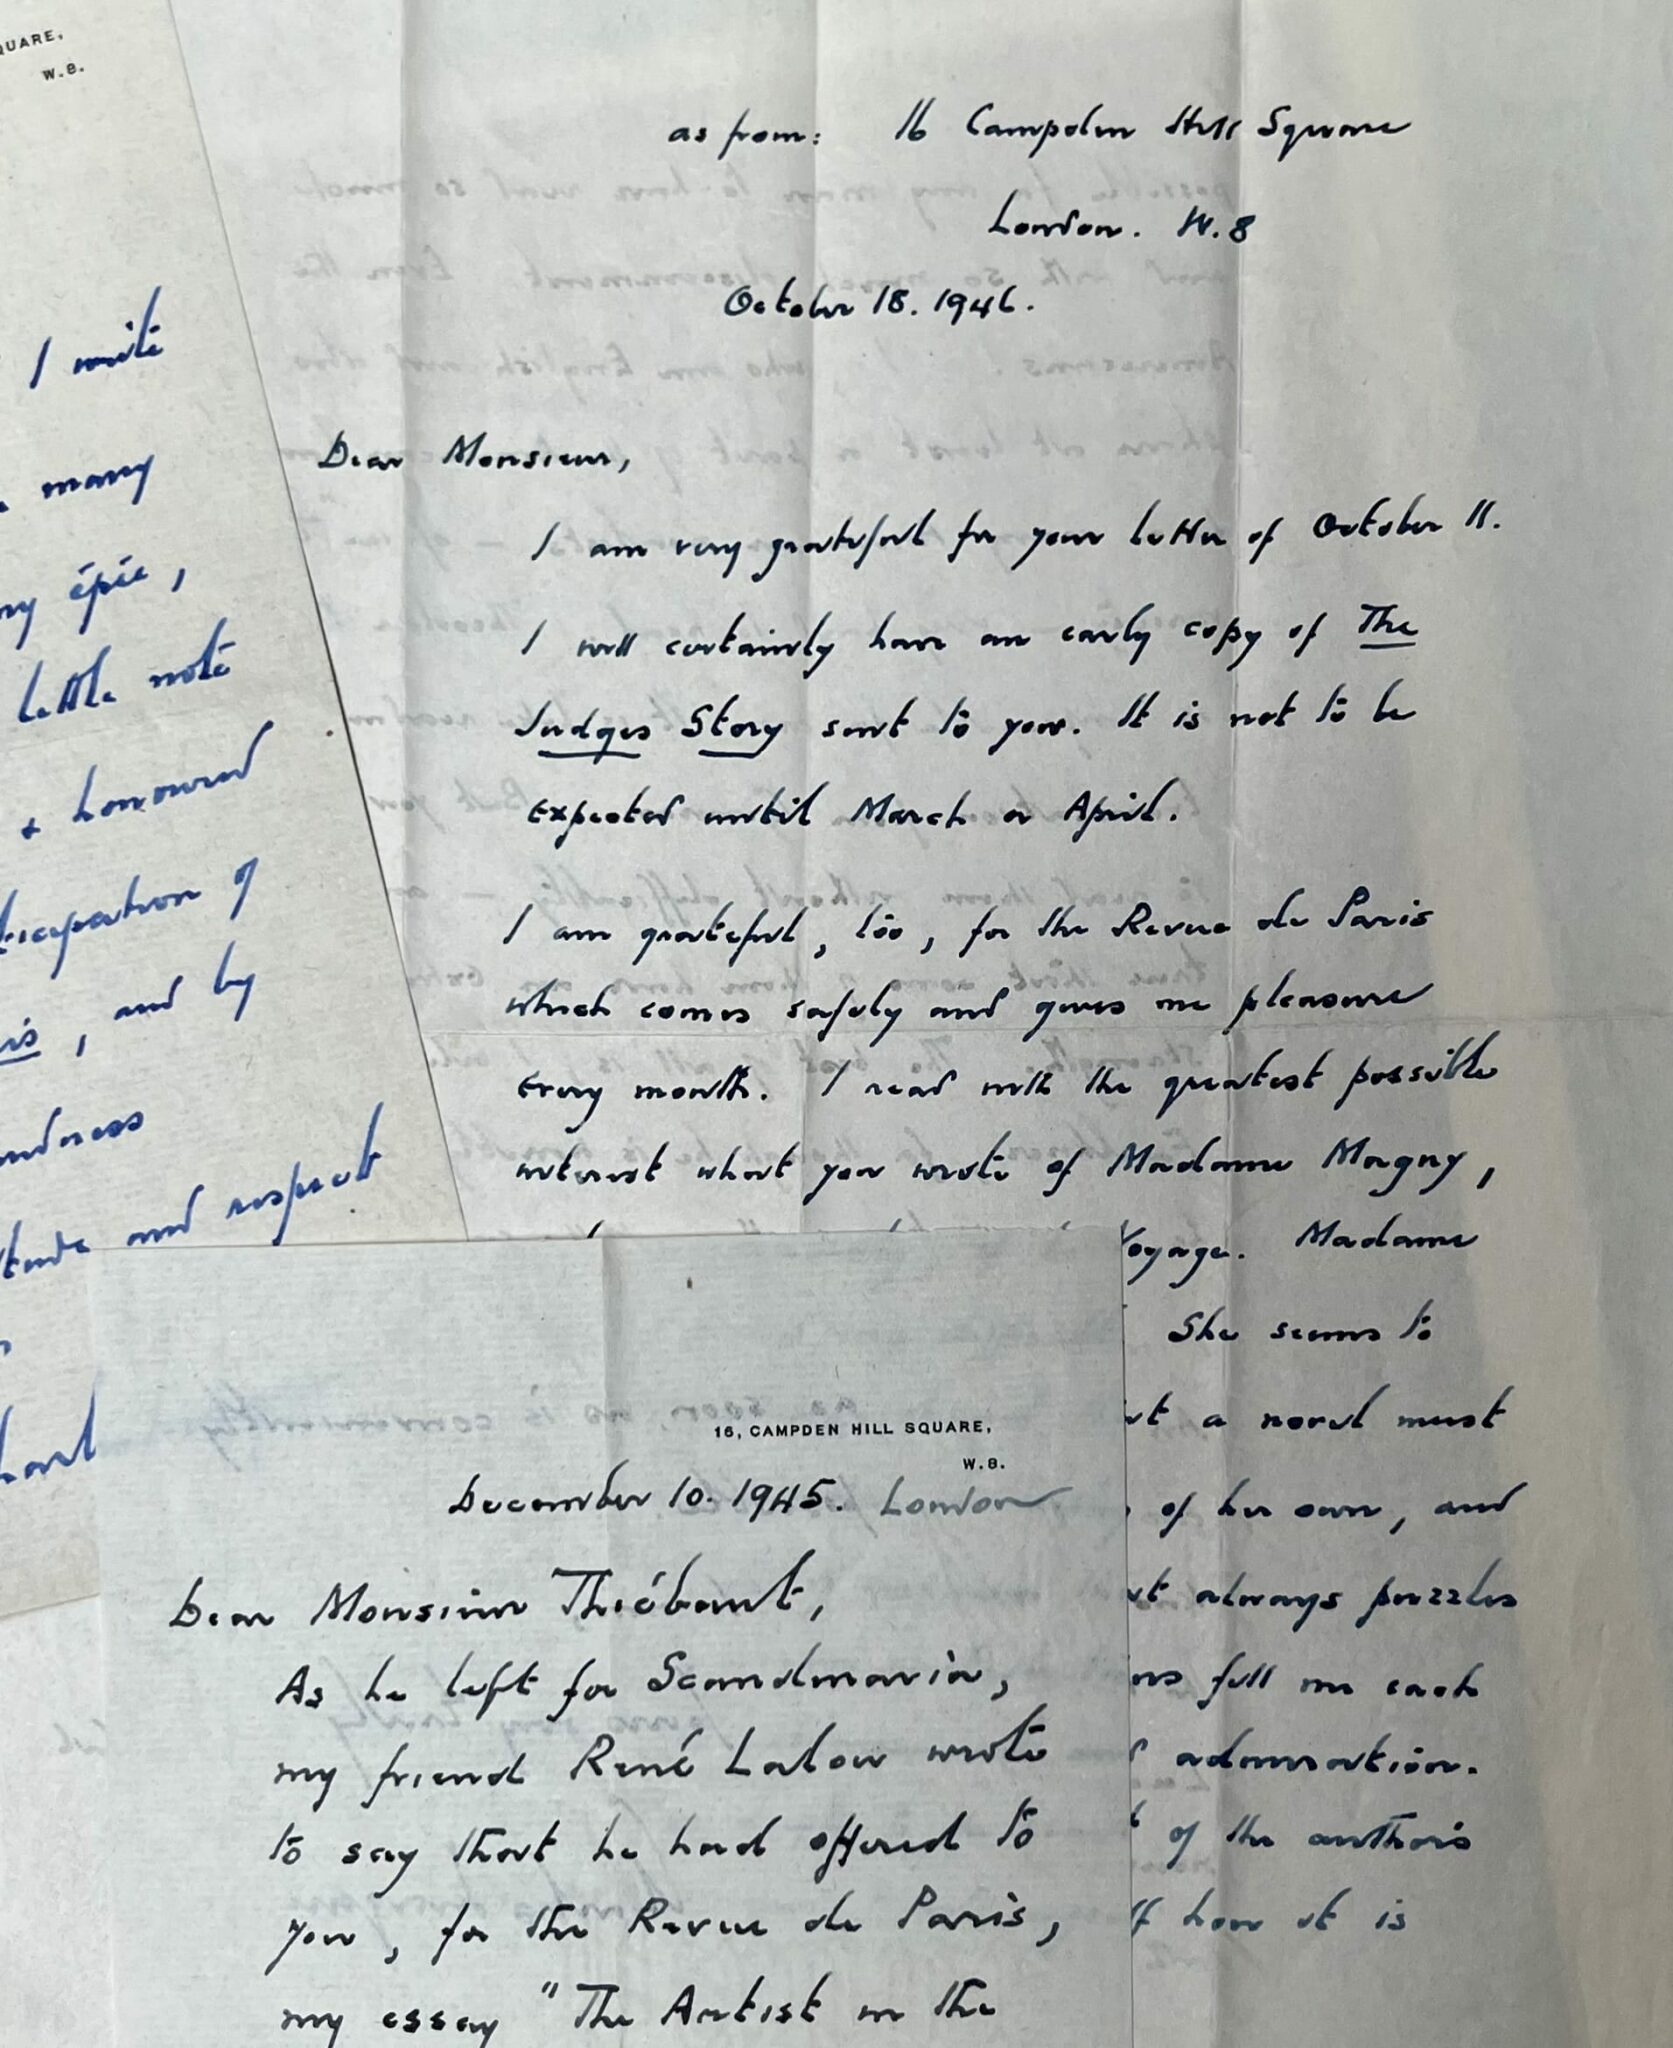 QUARE,
W.8.
I write
many
épée,
little note
& honoured
of
, and by
and respect
as from: 16 Campden Hill Square
London. W.8
October 18. 1946.
Dear Monsieur,
I am very grateful for your letter of October 11.
I will certainly have an early copy of The
Judges Story sent to you. It is not to be
expected until March or April.
I am grateful, too, for the Revue de Paris
which comes safely and gives me pleasure
every month. I read with the greatest possible
interest what you wrote of Madame Magny,
Voyage. Madame
She seems to
a novel must
of her own, and
always puzzles
fill me each
admiration.
of the authors
how it is
16, CAMPDEN HILL SQUARE,
W.8.
December 10. 1945. London
Dear Monsieur Thiébaut,
As he left for Scandinavia,
my friend René Lalou wrote
to say that he had offered to
you, for the Revue de Paris,
my essay "The Artist in the